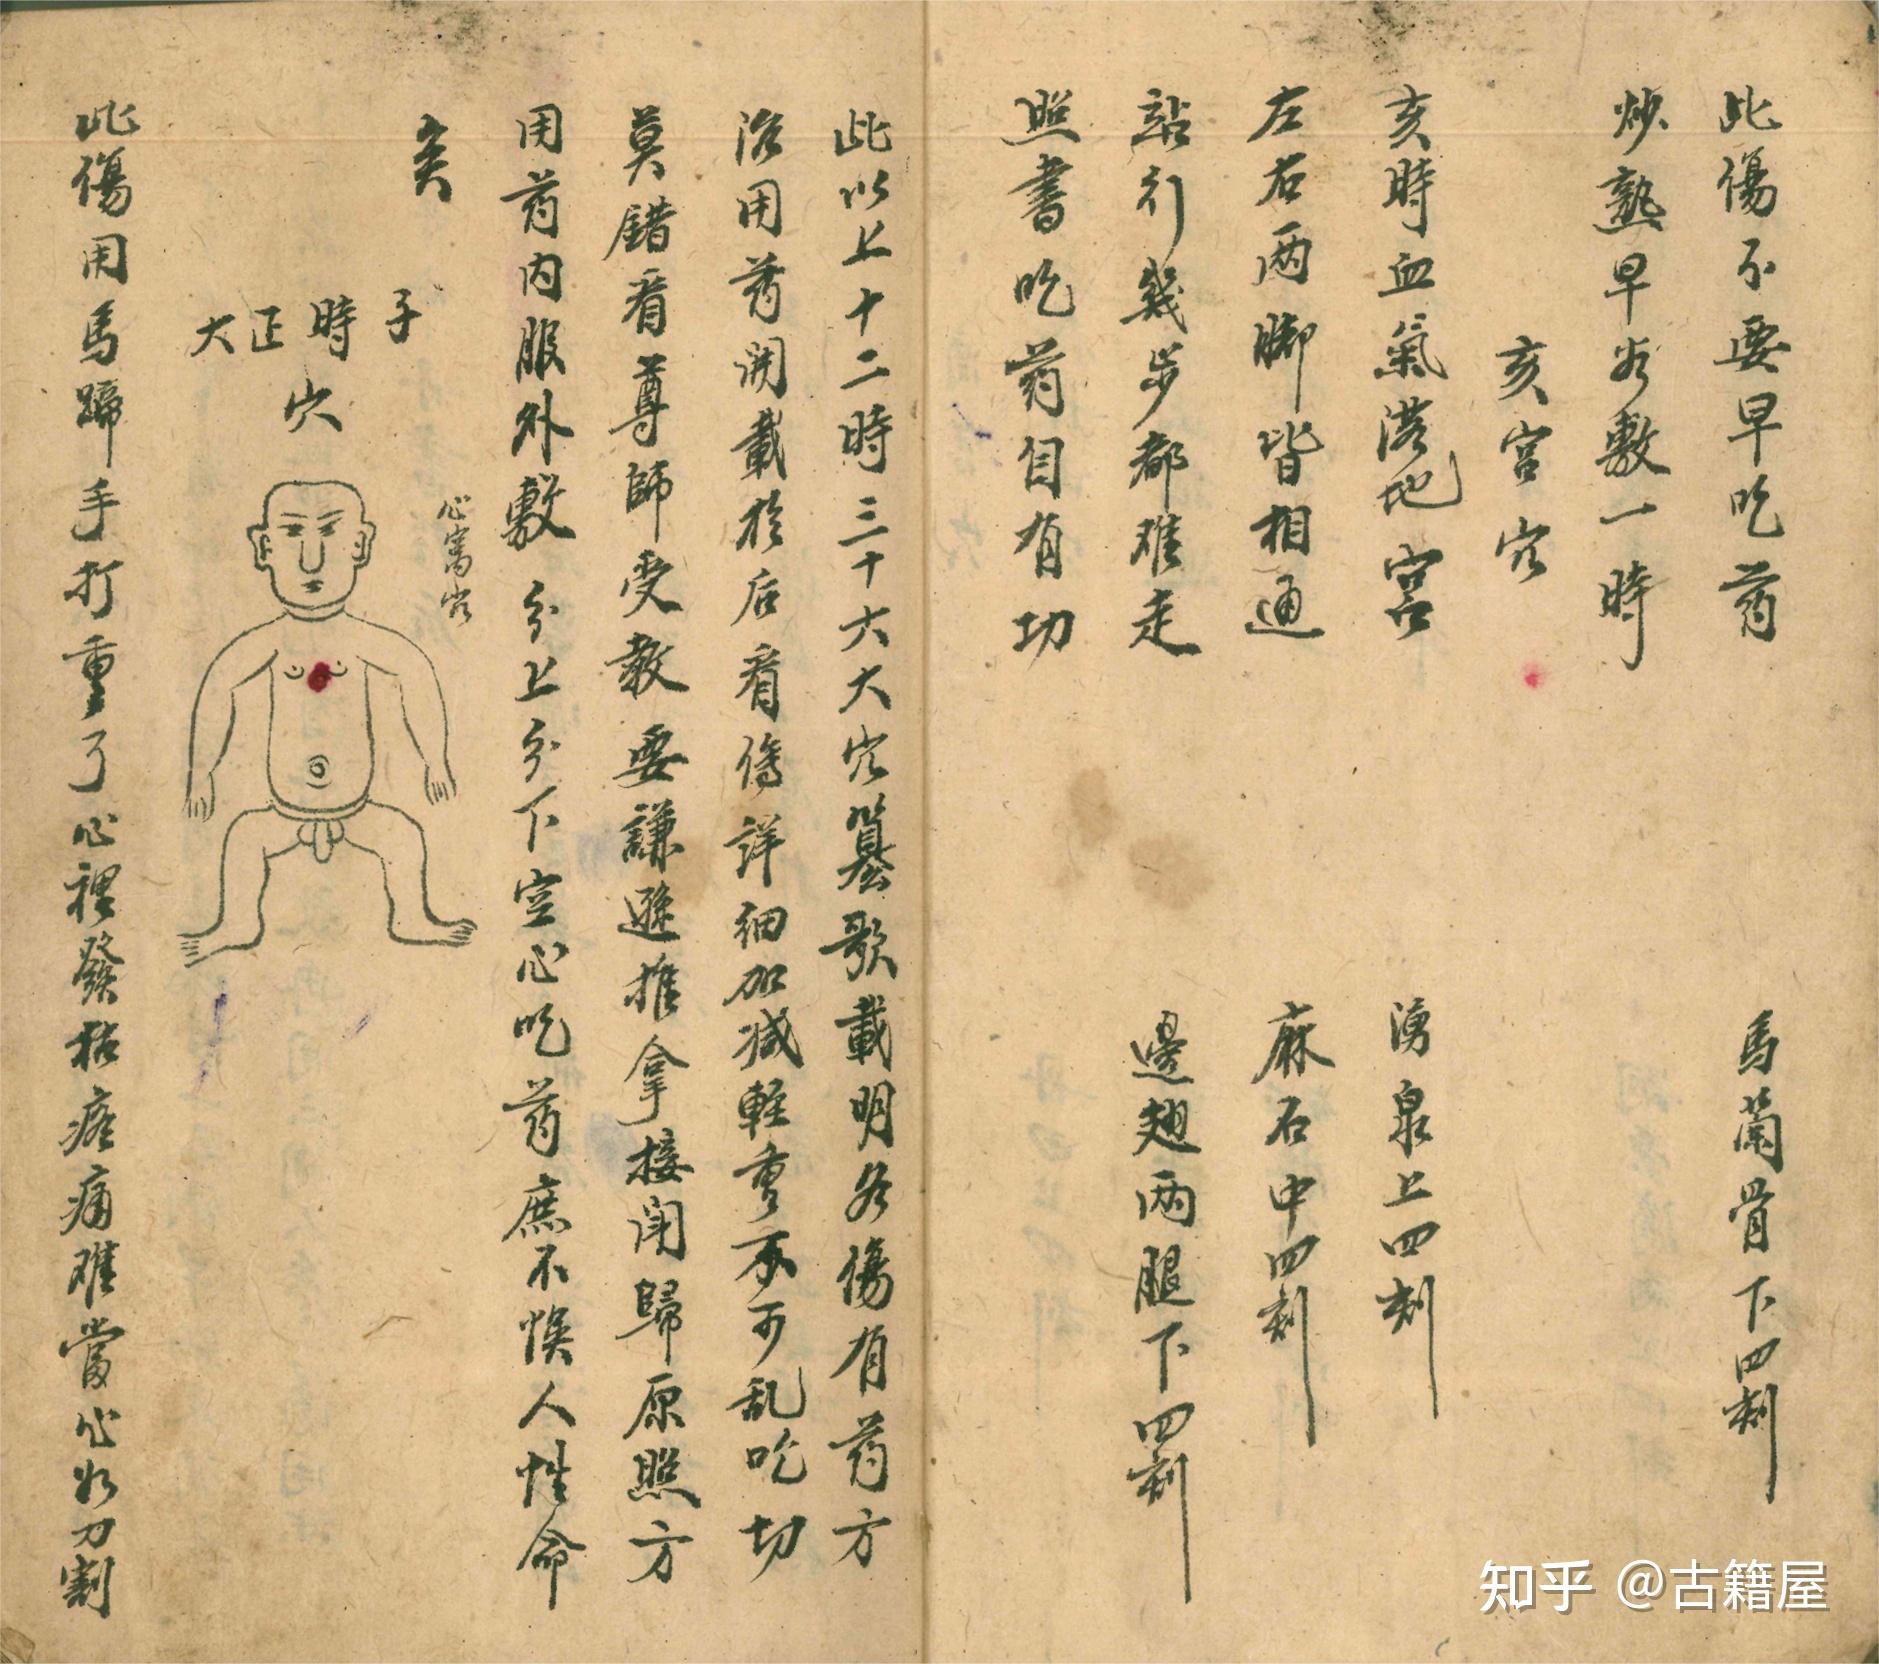 此傷不要早吃药
馬蘭骨下四刻
炒熟早谷敷一時
亥宮穴
亥時血氣落地宮
湧泉上四刻
左右两脚皆相通
麻石中四刻
站行幾步都难走
邊翅两腿下四刻
照書吃药自有功
此以上十二時三十六大穴纂歌載明各傷有药方
治用药開載於后看傷詳細加减軽重不可乱吃切
莫錯看尊師受教要謙遜推拿接闭歸原照方
用药内服外敷分上分下空心吃药庶不悞人性命
矣
子時正大
穴
心窩穴
此傷用馬蹄手打重了心裡發枯疼痛难當心如刀割
知乎 @古籍屋